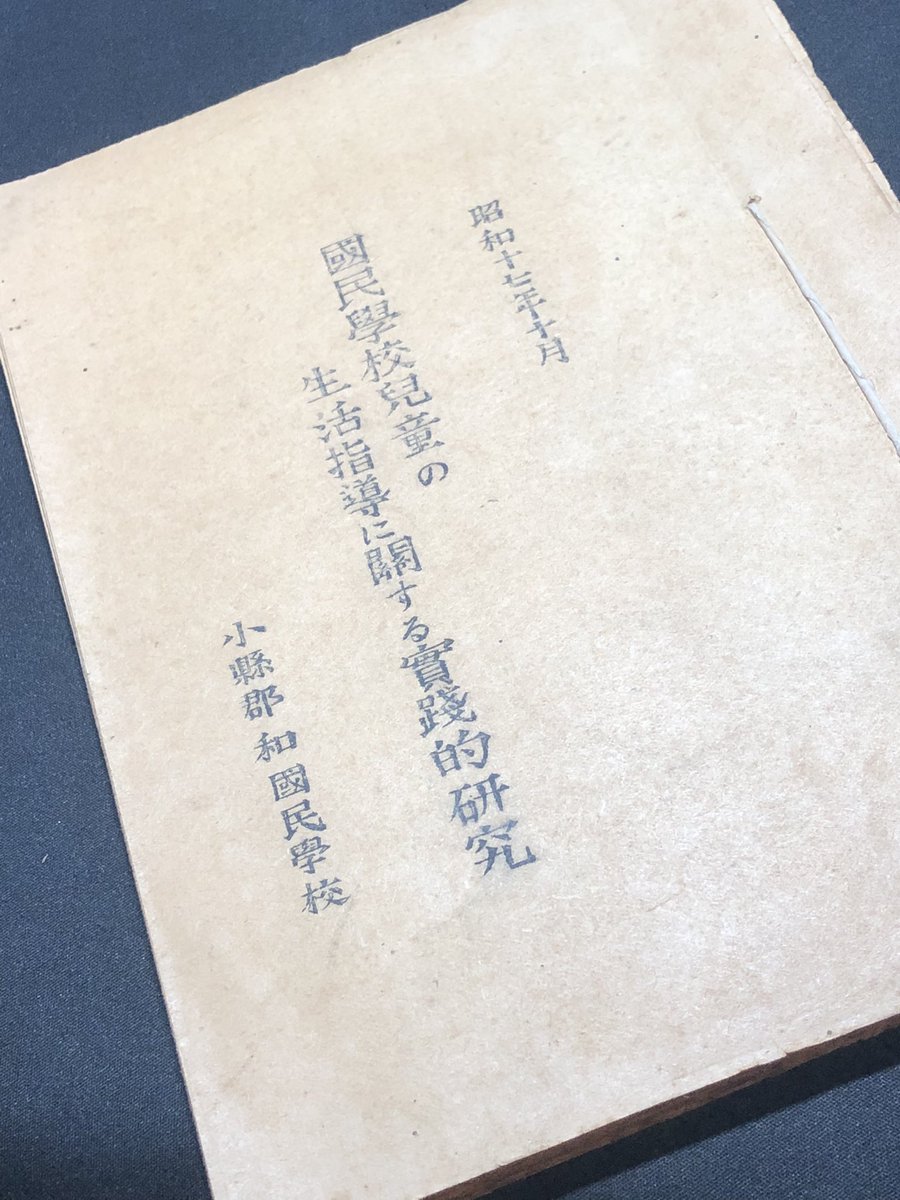 昭和十七年十月
國民學校兒童の
生活指導に關する實踐的研究
小縣郡和國民學校